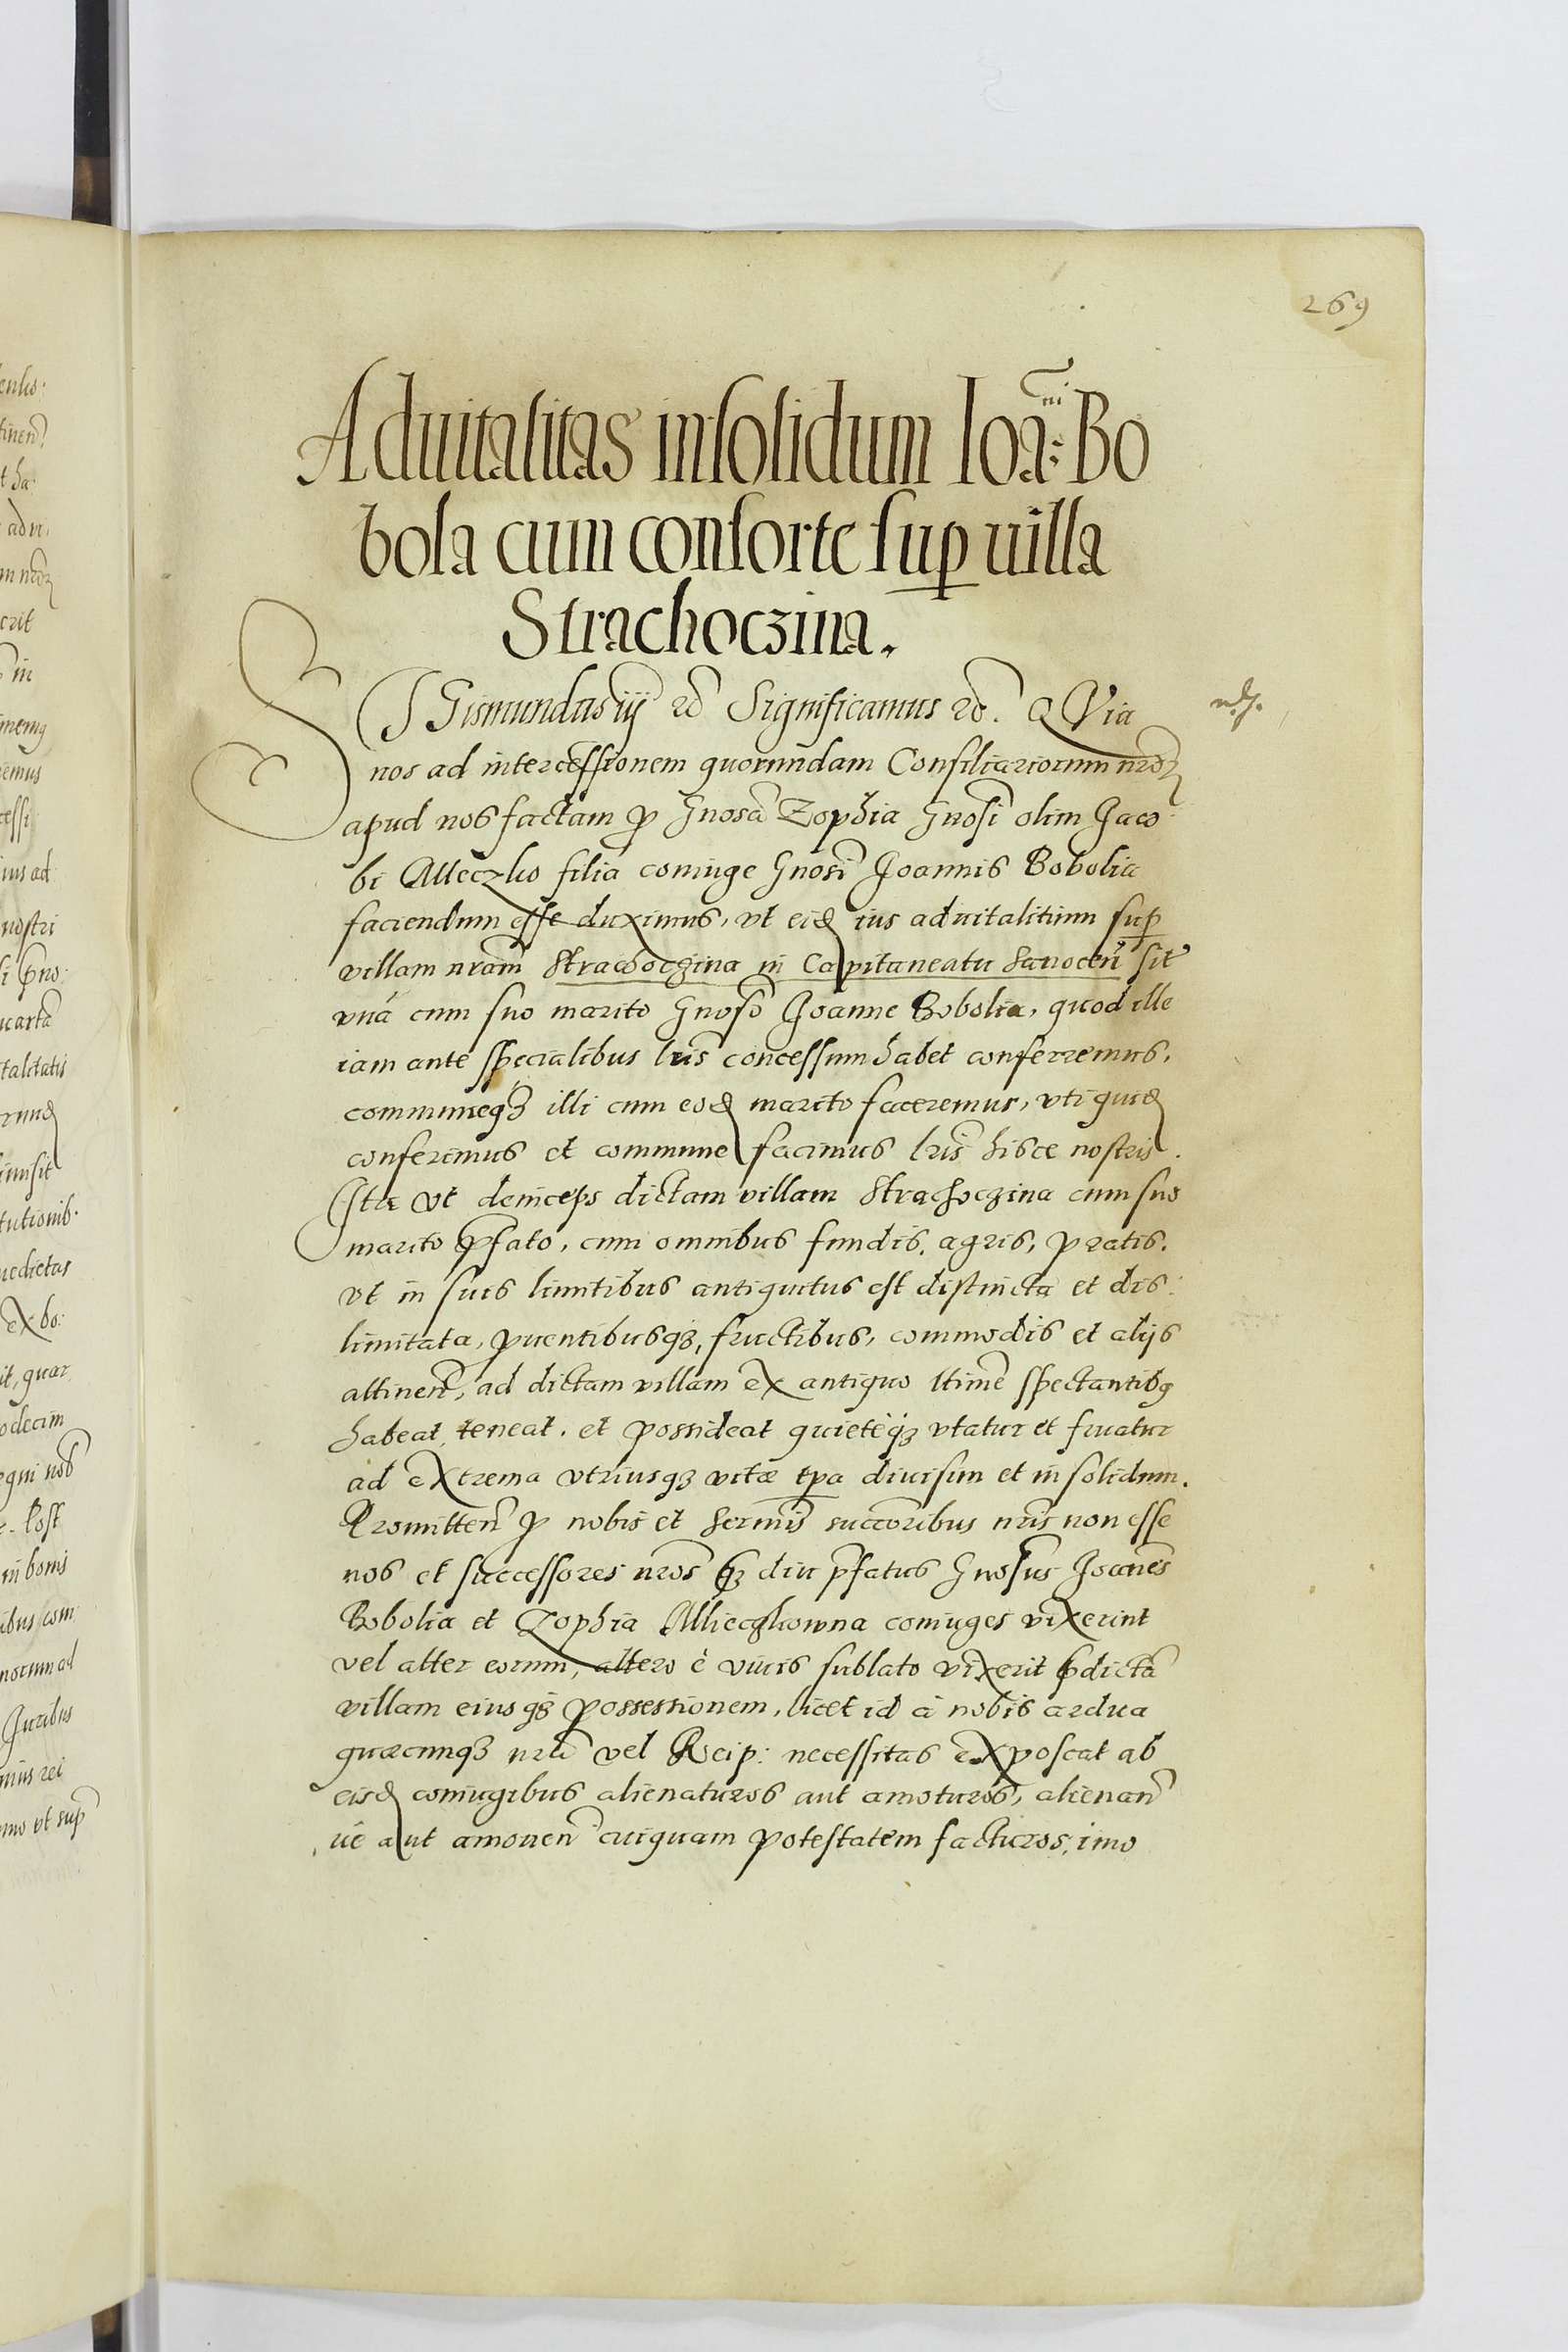 269
Aduitalitas insolidum Ioāni: Bo
bola cum consorte sup villa
Strachoczina.
SIGismundus iij Significamus QVia
nos ad intercessionem quorundam Consiliariorum nrōꝝ
apud nos factam ꝓ Gnosa Zophia Gnosi olim Jaco
bi filia coniuge Gnosi Joannis Bobolia
faciendum esse duximus, vt eid ius aduitalitium sup
villam nram Strachoczina in Capitaneatu Sanocen sit
vnà cum suo marito Gnoso Joanne Bobolia, quod ille
iam ante specialibus lris concessum habet conferremus,
communeqȝ illi cum eod marito faceremus, vti quid
conferimus et commune facimus lris hisce nostris.
Ita vt deinceps dictam villam Strachoczina cum suo
marito p̄fato, cum omnibus fundis, agris, pratis.
vt in suis limitibus antiquitus est distincta et dis:
limitata, ꝓuentibusqȝ, fructibus, commodis et alijs
attinen, ad dictam villam ex antiquo ltime spectantibꝰ
habeat, teneat, et possideat quietèqȝ vtatur et fruatur
ad extrema vtriusqȝ vitæ tpa diuisim et in solidum.
Promitten ꝓ nobis et Sermis succoribus nris non esse
nos et successores nros qȝ diu p̄fatus Gnosus Joanes
Bobolia et Zophia coniuges vixerint
vel alter eorum, altero è viuis sublato vixerit p̄dicta
villam eiusqȝ possessionem, licet id à nobis ardua
quæcunqȝ nra vel Reip: necessitas exposcat ab
eisd coniugibus alienaturos aut amoturos, alienan
ue aut amouen cuiquam potestatem facturos, imo